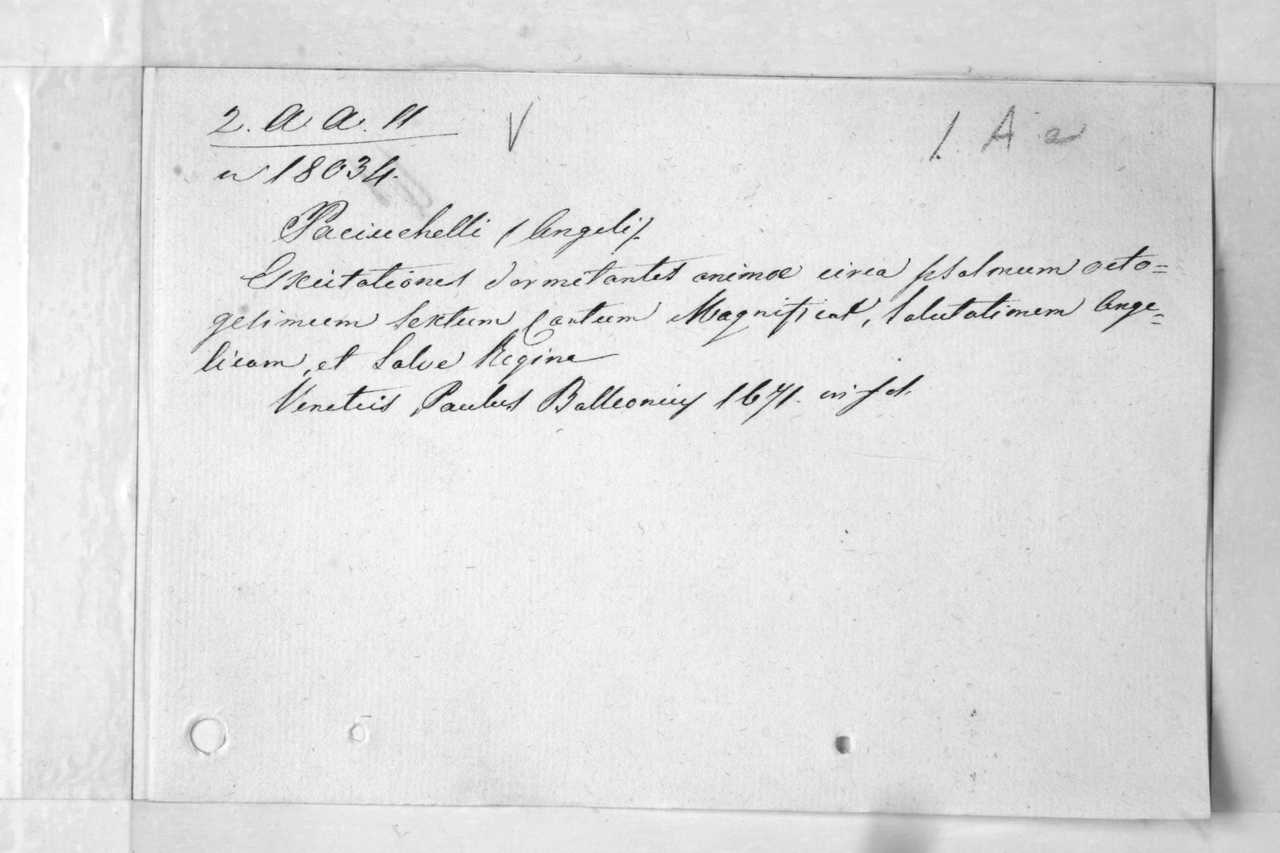 2. A A. 11
V
1. A a
n 18034.
Paciuchelli (Angeli).
Excitationes dormitantis animæ circa psalmum octo=
gesimum sextum, Cantum Magnificat, Salutationem Ange=
licam, et Salve Regina
Venetiis, Paulus Balleonius 1671. in fol.